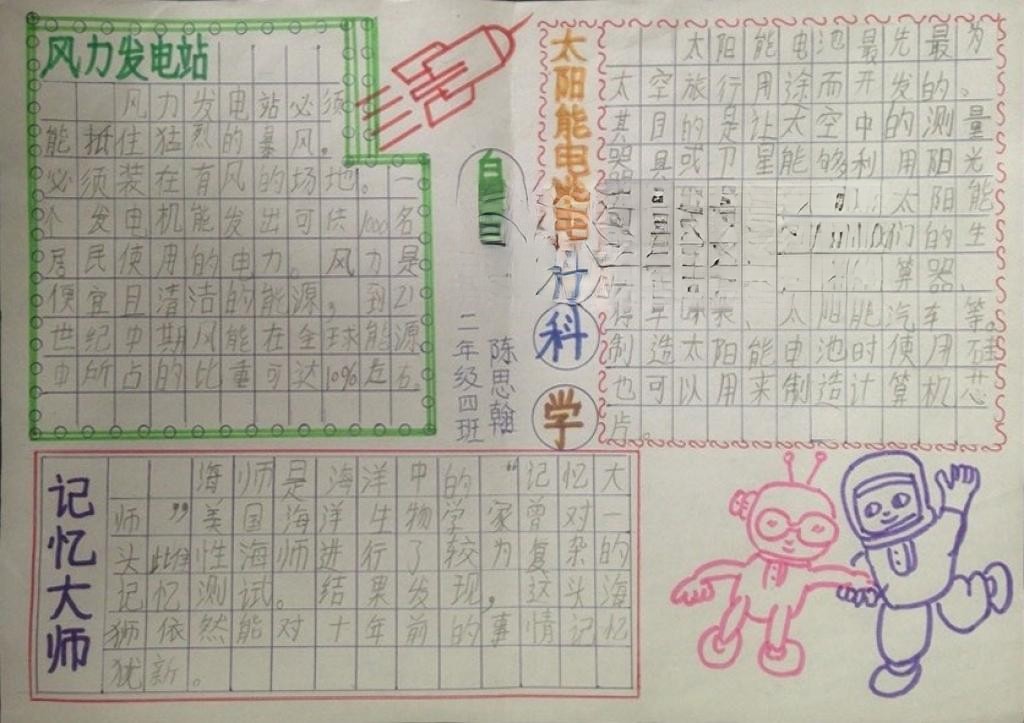 风力发电站
风力发电站必须
能抵住猛烈的暴风。
必须装在有风的场地。一
个发电机能发出可供1000名
居民使用的电力。风力是
便宜且清洁的能源，到21
世纪中期风能在全球能源
中所占的比重可达10%左右
科
学
二年级四班
陈思翰
太阳能电池
太阳能电池最先最为
太空旅行用途而开发的。
其目的是让太空中的测量
器具或卫星能够利用阳光
太阳能
们的生
算器、
太阳能汽车等。
制造太阳能电池时使用硅
也可以用来制造计算机芯
片。
记忆大师
海师是海洋中的“记忆大
师”美国海洋生物学家曾对一
头雌性海师进行了较为复杂的
记忆测试。结果发现，这头海
狮依然能对十年前的事情记忆
犹新。